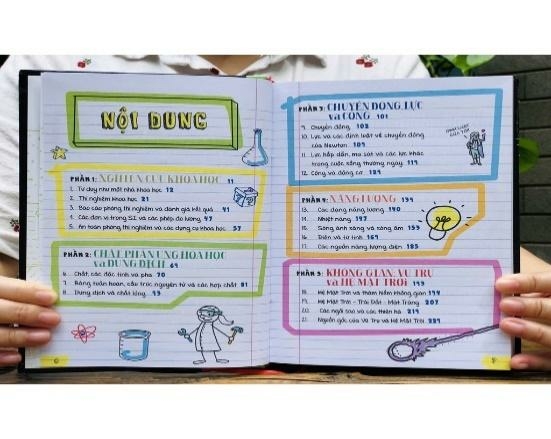 NỘI DUNG
PHẦN 1: NGHIÊN CỨU KHOA HỌC 11
1. Tư duy như một nhà khoa học 12
2. Thí nghiệm khoa học 21
3. Báo cáo phòng thí nghiệm và đánh giá kết quả 41
4. Các đơn vị trong SI và các phép đo lường 47
5. An toàn phòng thí nghiệm và các dụng cụ khoa học 57
PHẦN 2: CHẤT, PHẢN ỨNG HÓA HỌC
và DUNG DỊCH 69
6. Chất, các đặc tính và pha 70
7. Bảng tuần hoàn, cấu trúc nguyên tử và các hợp chất 81
8. Dung dịch và chất lỏng 93
PHẦN 3: CHUYỂN ĐỘNG, LỰC
và CÔNG 101
9. Chuyển động 102
10. Lực và các định luật về chuyển động
của Newton 109
11. Lực hấp dẫn, ma sát và các lực khác
trong cuộc sống thường ngày 119
12. Công và động cơ 129
PHẦN 4: NĂNG LƯỢNG 139
13. Các dạng năng lượng 140
14. Nhiệt năng 147
15. Sóng ánh sáng và sóng âm 153
16. Điện và từ tính 169
17. Các nguồn năng lượng điện 185
PHẦN 5: KHÔNG GIAN, VŨ TRỤ
và HỆ MẶT TRỜI 193
18. Hệ Mặt Trời và thám hiểm không gian 194
19. Hệ Mặt Trời - Trái Đất - Mặt Trăng 207
20. Các ngôi sao và các thiên hà 219
21. Nguồn gốc của Vũ Trụ và Hệ Mặt Trời 229